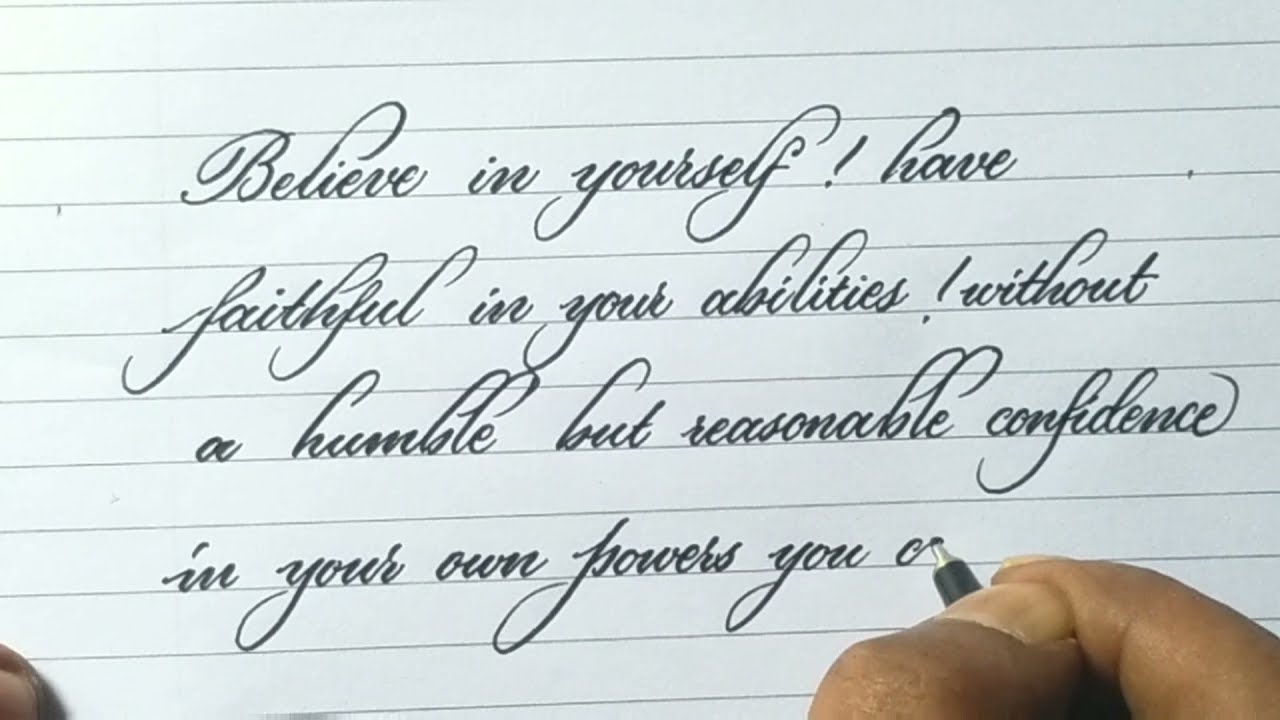 Believe in yourself! have
faithful in your abilities! without
a humble but reasonable confidence
in your own powers you c